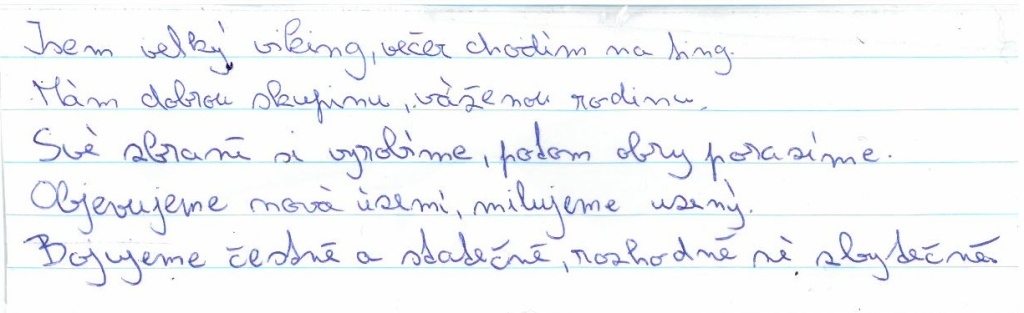 Jsem velký viking, večer chodím na ting.
Mám dobrou skupinu, váženou rodinu.
Své zbraně si vyrobíme, potom obry porazíme.
Objevujeme nová území, milujeme uzený.
Bojujeme čestně a statečně, rozhodně né zbytečně.